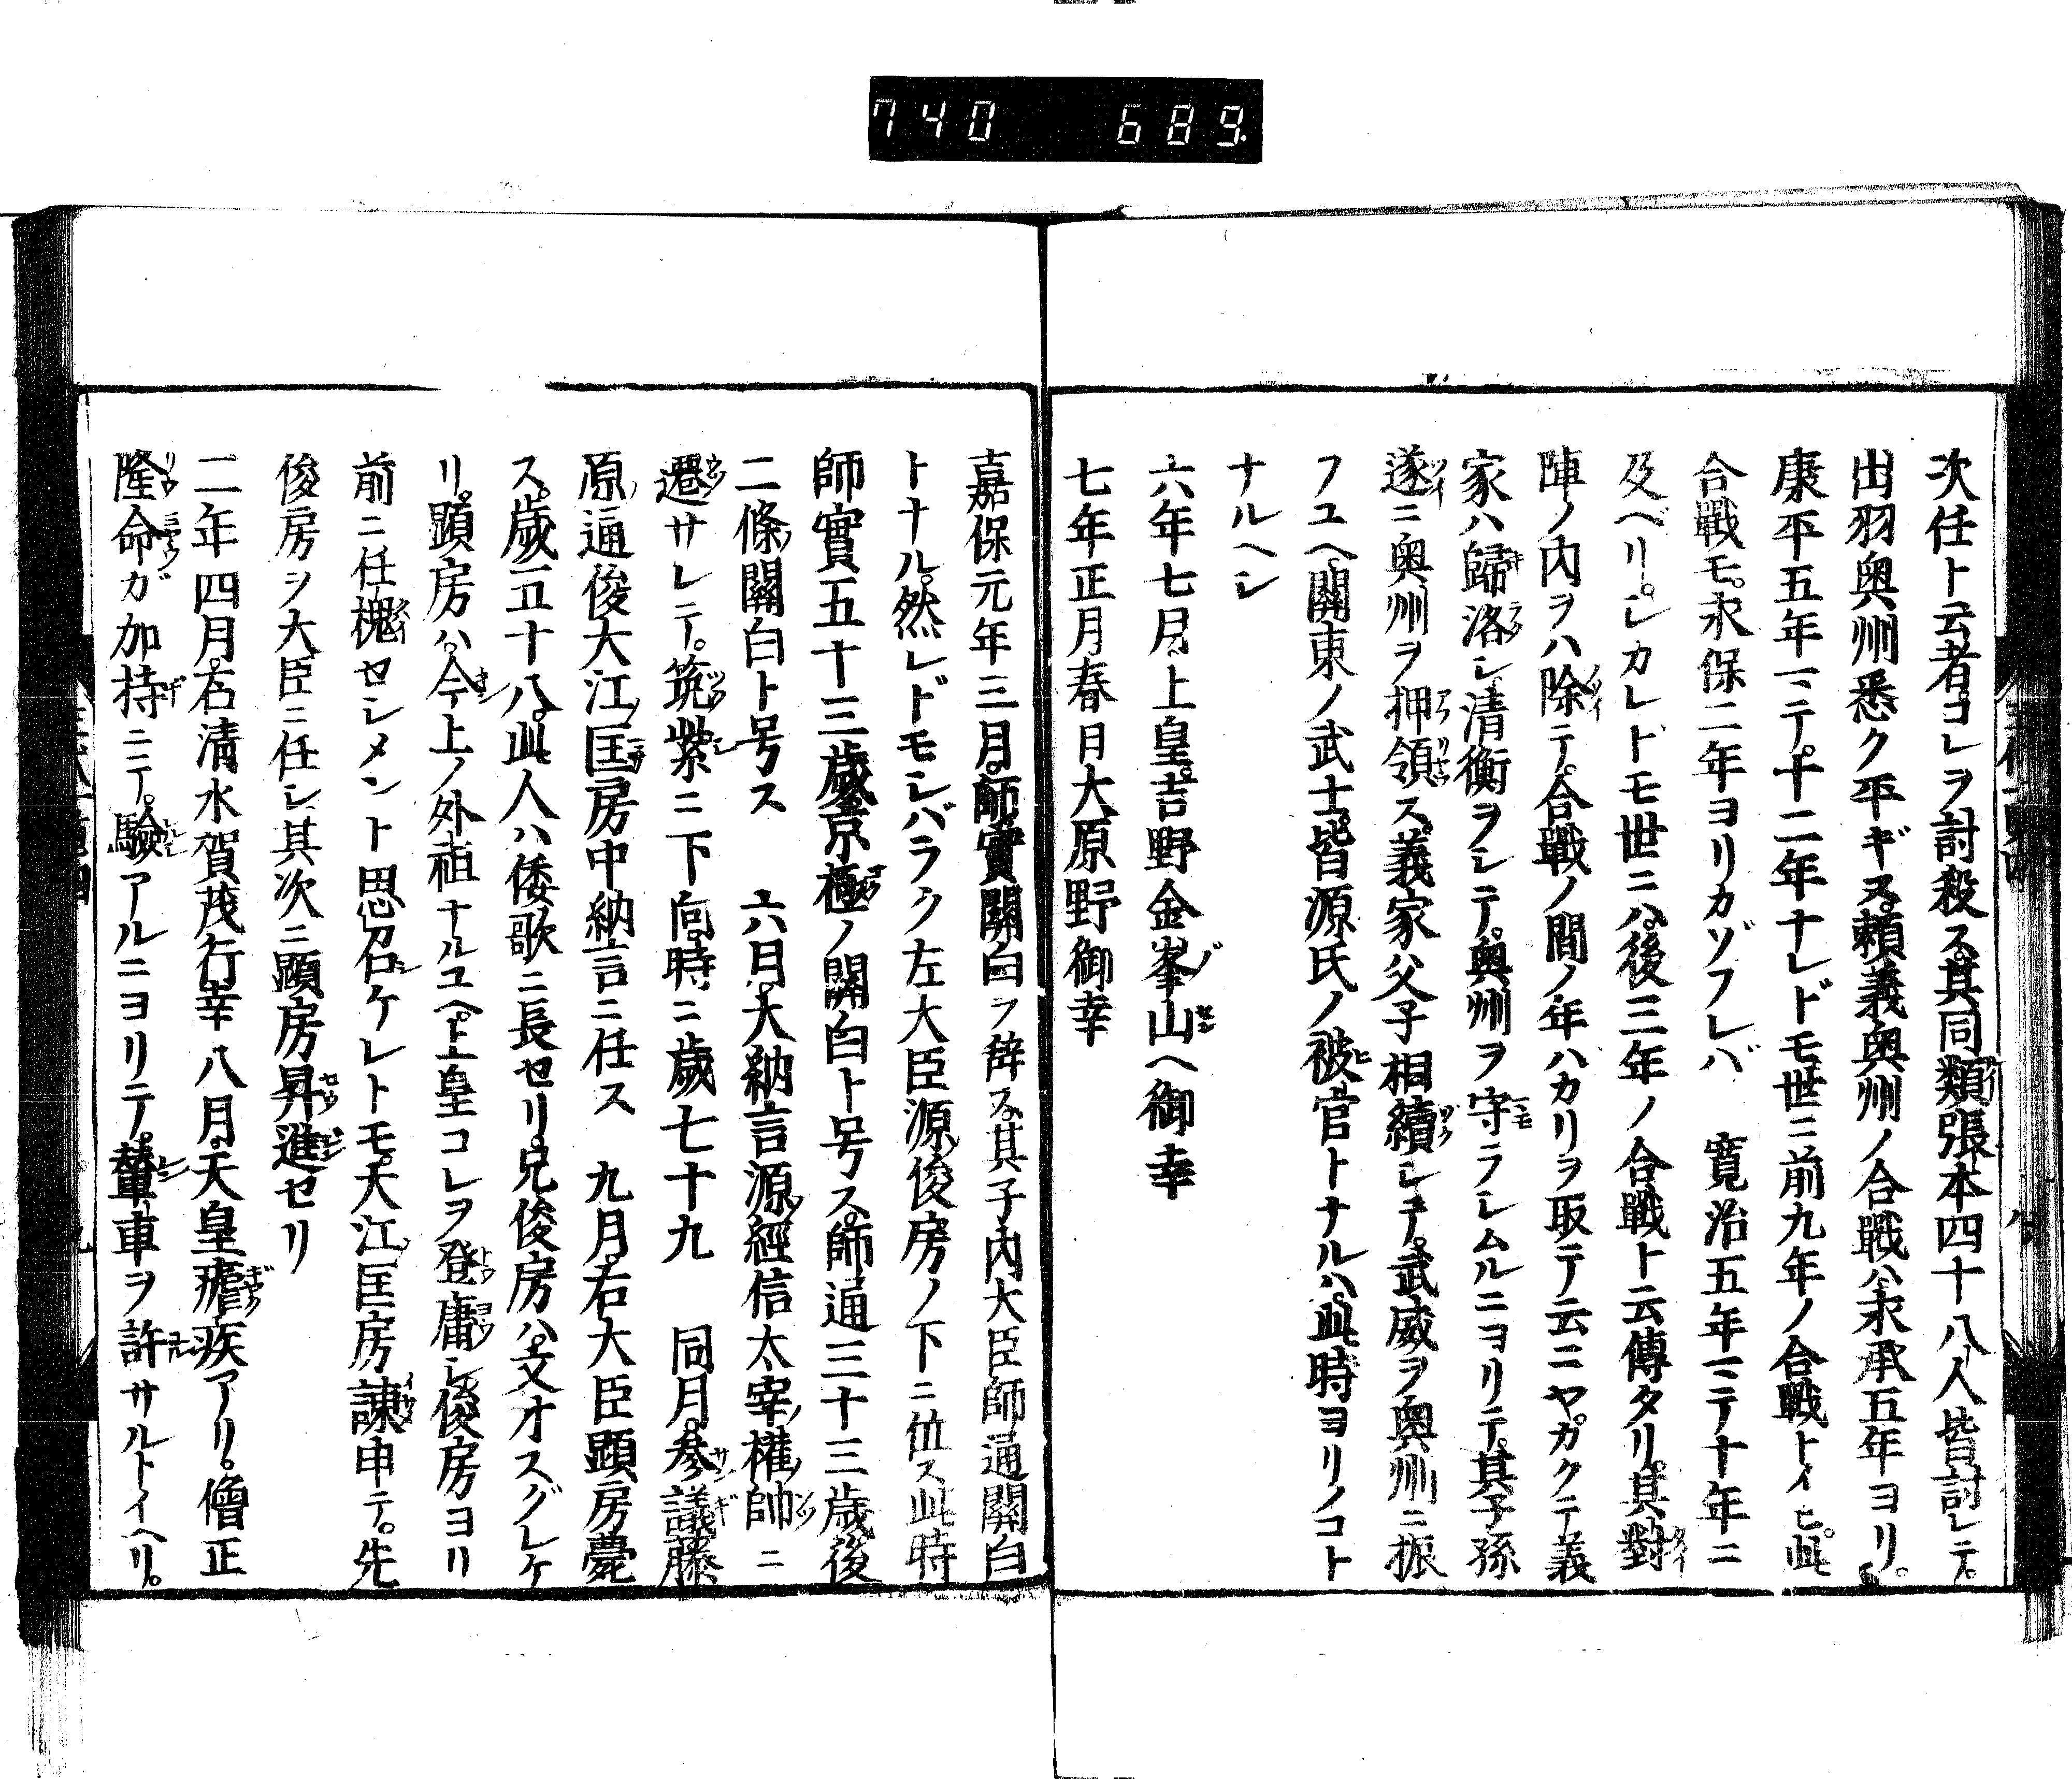 740 689.
次任ト云者。コレヲ討殺ス。其同類張本四十八人皆討レテ。
出羽奥州悉ク平ギヌ。頼義奥州ノ合戰ハ。永承五年ヨリ。
康平五年マテ。十二年ナレドモ世ニ前九年ノ合戰トイヒ。此
合戰モ。永保二年ヨリカゾフレバ 寛治五年マテ十年ニ
及ベリ。シカレドモ世ニハ。後三年ノ合戰ト云傳タリ。其對
陣ノ内ヲハ除テ。合戰ノ間ノ年ハカリヲ取テ云ニヤ。カクテ義
家ハ歸洛シ清衡ヲシテ。奥州ヲ守ラシムルニヨリテ。其子孫
遂ニ奥州ヲ押領ス。義家ハ父子相續シテ。武威ヲ奥州ニ振
フユヘ。關東ノ武士。皆源氏ノ被官トナルハ。此時ヨリノコト
ナルヘシ
六年七月。上皇。吉野金峯山ヘ御幸
七年正月春日大原野御幸
嘉保元年三月。師實關白ヲ辞ス。其子内大臣師通關白
トナル。然レドモシバラク左大臣源俊房ノ下ニ位ス此時
師實五十三歳。京極ノ關白ト号ス。師通三十三歳後
二條關白ト号ス 六月。大納言源經信太宰權帥ニ
遷サレテ。筑紫ニ下向。時ニ歳七十九 同月。參議藤
原通俊大江匡房中納言ニ任ス 九月。右大臣顕房薨
ス。歳五十八。此人ハ倭歌ニ長セリ。兄俊房ハ。文才スグレケ
リ。顕房ハ。今上ノ外祖ナルユヘ。上皇コレヲ登庸シ俊房ヨリ
前ニ任槐セシメント思召ケレトモ。大江匡房諫申テ。先
俊房ヲ大臣ニ任シ其次ニ顕房昇進セリ
二年四月。石清水賀茂行幸 八月。天皇瘧疾アリ。僧正
隆命ガ加持ニテ。驗アルニヨリテ。輦車ヲ許サルトイヘリ。